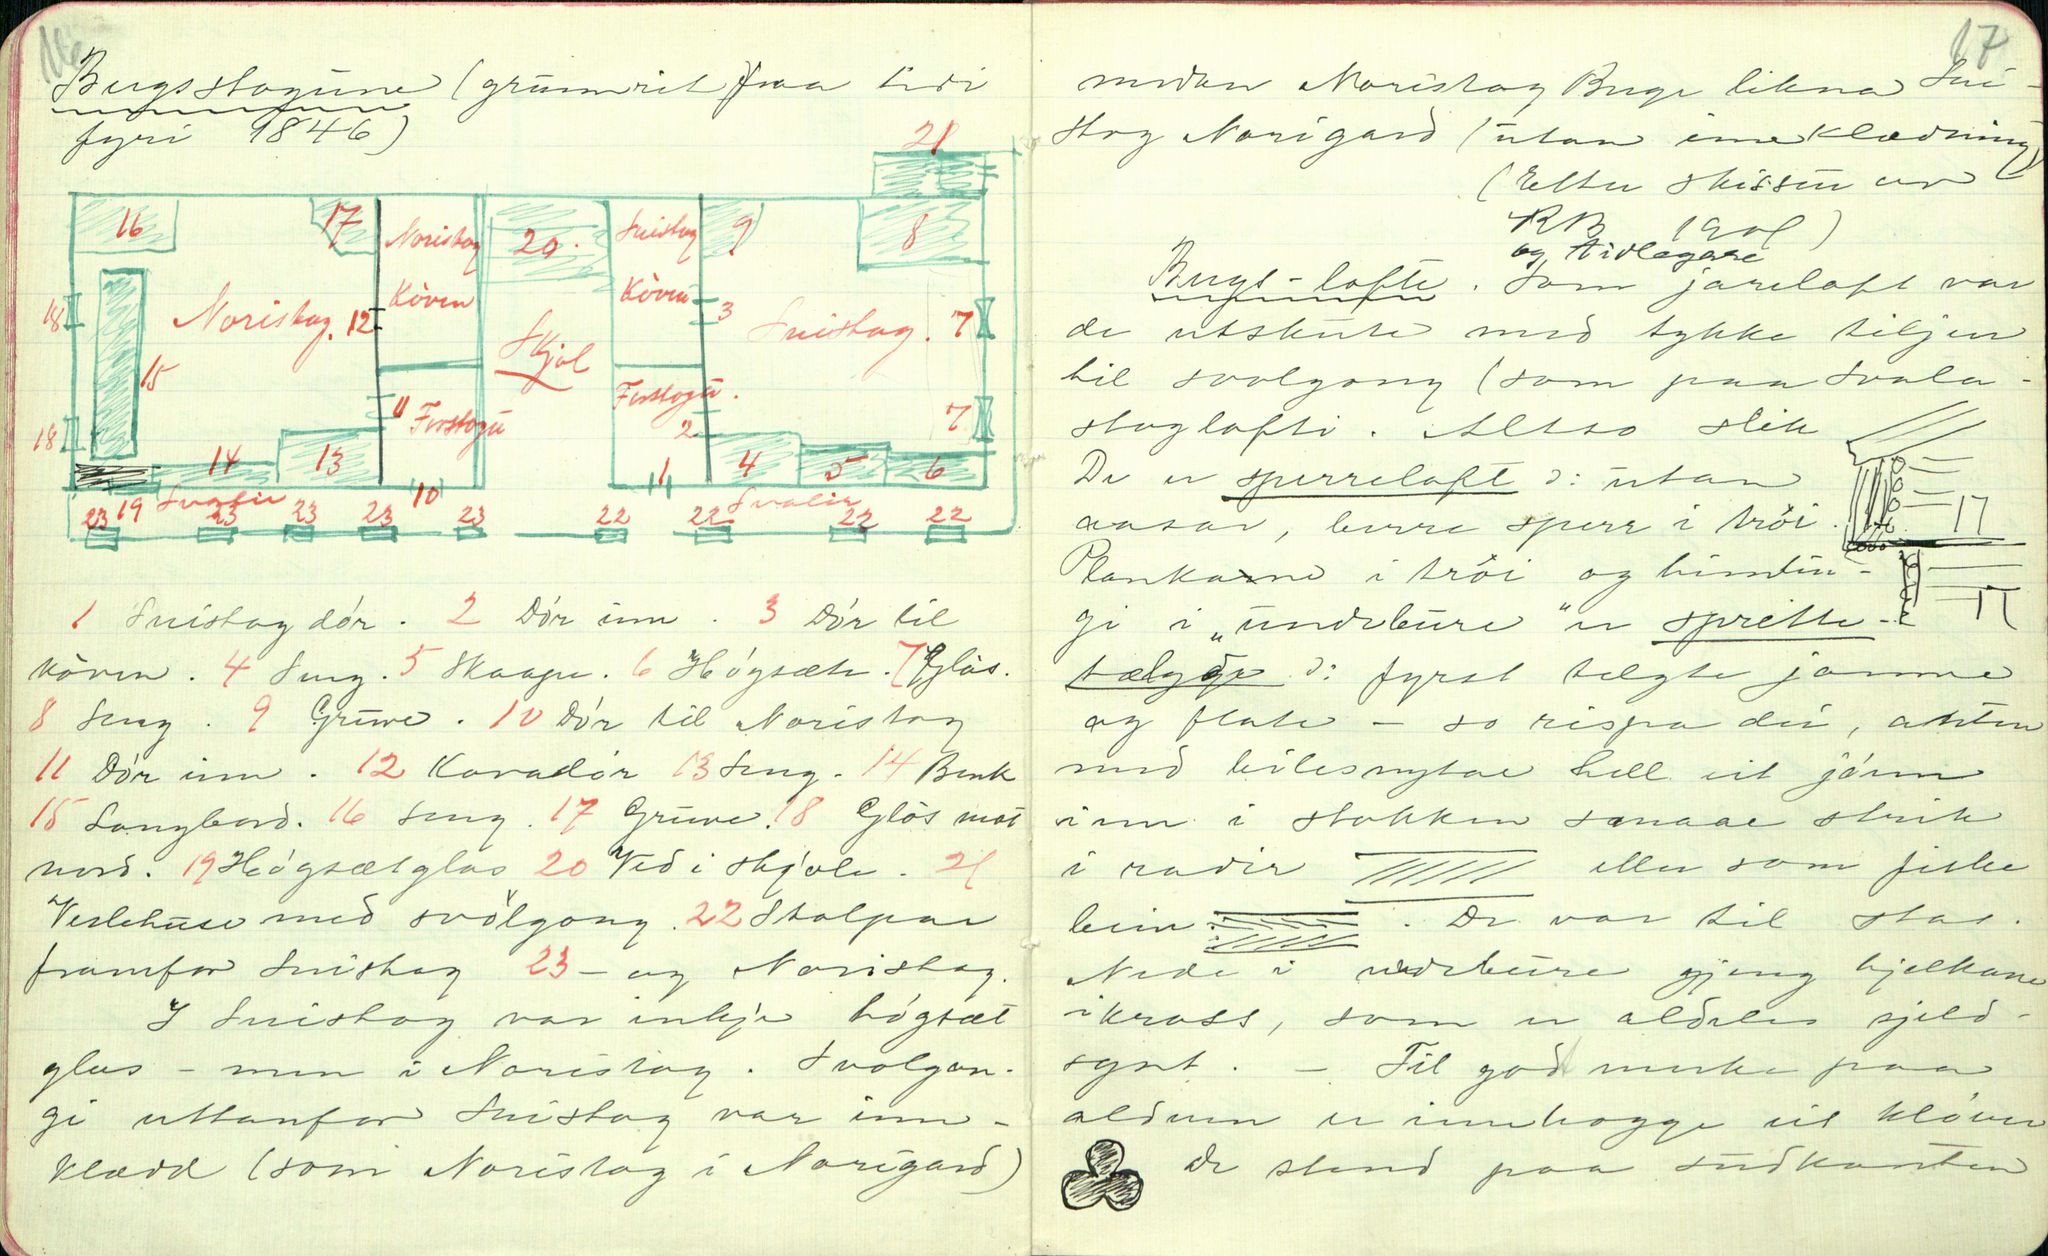 16
Bugsstogune (grunnrit fraa tidi
fyri 1846)
21
16
17
Noristog
Köven
20.
Suistog
Köven
9
8
18
Noristog.
12
3
Suistog.
7
15
Skjol
18
11
Forstogu
Forstogu.
2
7
14
13
1
4
5
6
19
Svalir
10
Svalir
23
23
23
23
23
22
22
22
22
1 Suistog dór. 2 Dór inn. 3 Dór til
köven. 4 Seng. 5 Skaape. 6 Högsæte. 7 Glòs.
8 Seng. 9 Gruve. 10 Dór til Noristog
11 Dór inn. 12 Kovadór 13 Seng. 14 Benk
15 Langbord. 16 Seng. 17 Gruve. 18 Glòs mot
nord. 19 Högsætglas 20 Ved i skjole. 21
Veslehuse med svolgong. 22 Stolpar
framfor Suistog 23 - og Noristog.
I Suistog var inkje högsæt
glas - men i Noristog. Svolgon-
gi uttanfor Suistog var inn-
klædd (som Noristog i Norigard)
17
medan Noristog Buge likna Sui-
stog Norigard (utan inneklædning)
(Etter skissur av
RB 1901)
og tidlegare
Bugs-lofte. Som jareloft var
de utskote med tykke tiljer
til svolgong (som paa Svala-
stoglofti. Altso slik
De er sperreloft ɔ: utan
aasar, berre sperr i tröi.
Plankarne i tröi og bindin-
gi i "undebure" er sprette-
tælgde ɔ: fyrst telgte jamne
og flate - so rispa dei, anten
med bilesnytae hell eit jönn
inn i stokken smaae strik
i radir eller som fiske
bein. De var til stas.
Nede i undebure gjeng bjelkane
i kross, som er aldeles sjeld-
synt. - Til god merke paa
alderen er innhogge eit klöver
De stend paa sudkanten